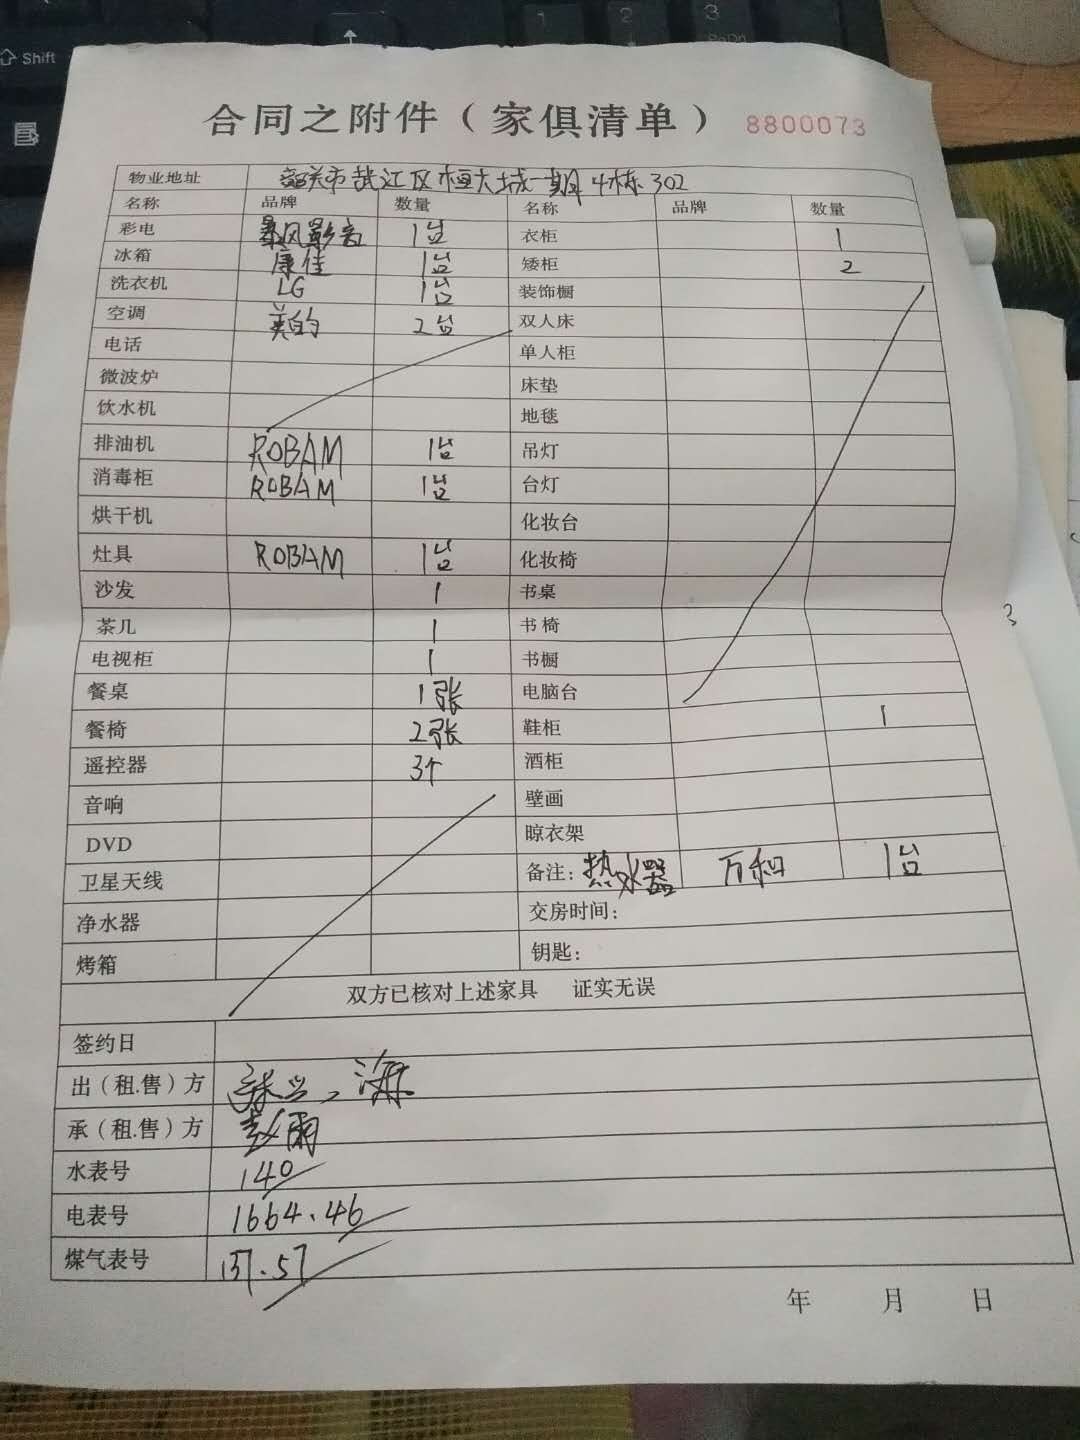 Shift
1 2 3
合同之附件（家俱清单） 8800073
物业地址 韶关市武江区恒大城一期4栋302
名称 品牌 数量 名称 品牌 数量
彩电 暴风影音 1台 衣柜 1
冰箱 康佳 1台 矮柜 2
洗衣机 LG 1台 装饰橱
空调 美的 2台 双人床
电话 单人柜
微波炉 床垫
饮水机 地毯
排油机 ROBAM 1台 吊灯
消毒柜 ROBAM 1台 台灯
烘干机 化妆台
灶具 ROBAM 1台 化妆椅
沙发 1 书桌
茶几 1 书椅
电视柜 1 书橱
餐桌 1张 电脑台
餐椅 2张 鞋柜 1
遥控器 3个 酒柜
音响 壁画
DVD 晾衣架
卫星天线 备注：热水器 万和 1台
净水器 交房时间：
烤箱 钥匙：
双方已核对上述家具 证实无误
签约日
出（租.售）方
承（租.售）方 赵雨
水表号 140
电表号 1664.46
煤气表号 137.57
年 月 日